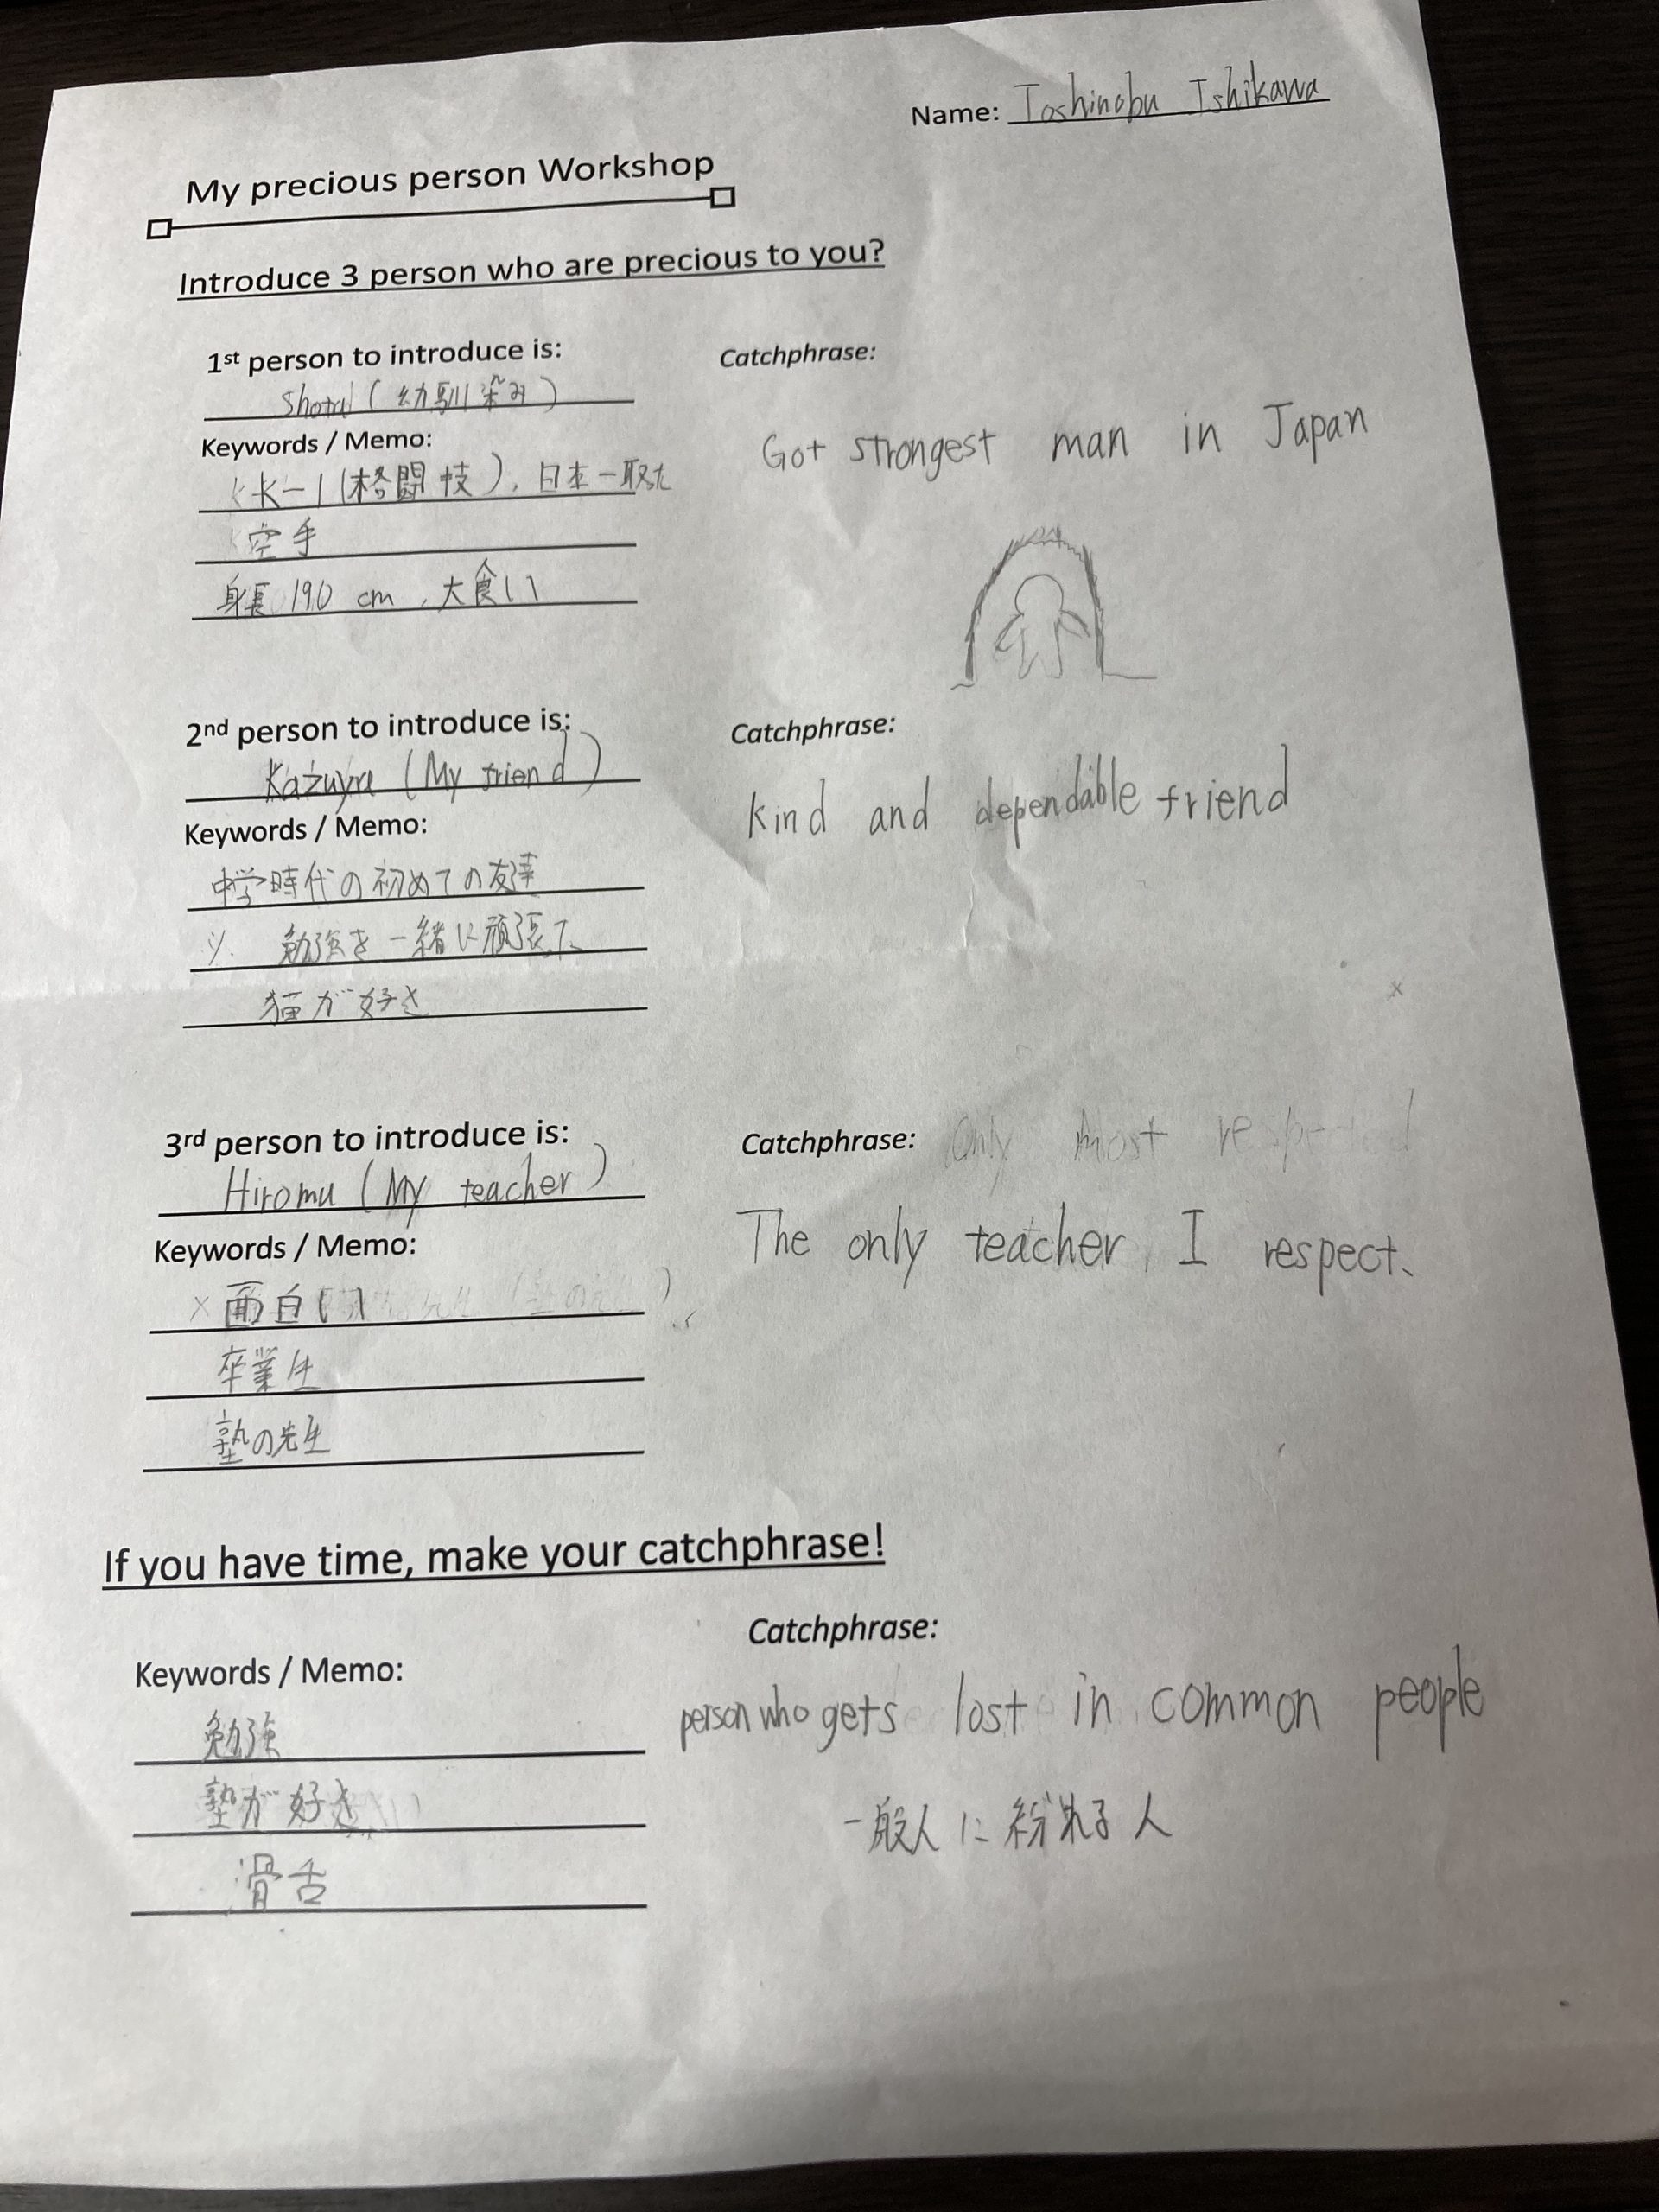 Name: Toshinobu Ishikawa
My precious person Workshop
Introduce 3 person who are precious to you?
1st person to introduce is:
(幼馴染み)
Keywords / Memo:
K-1(格闘技), 日本一取った
空手
身長 190 cm, 大食い
Catchphrase:
Got strongest man in Japan
2nd person to introduce is:
Kazuya (My friend)
Keywords / Memo:
中学時代の初めての友達
勉強を一緒に頑張った
猫が好き
Catchphrase:
kind and dependable friend
3rd person to introduce is:
Hiromu (My teacher)
Keywords / Memo:
× 面白い
卒業生
塾の先生
Catchphrase: Only most
The only teacher I respect、
If you have time, make your catchphrase!
Keywords / Memo:
勉強
塾が好き
滑舌
Catchphrase:
person who gets lost in common people
一般人に紛れる人